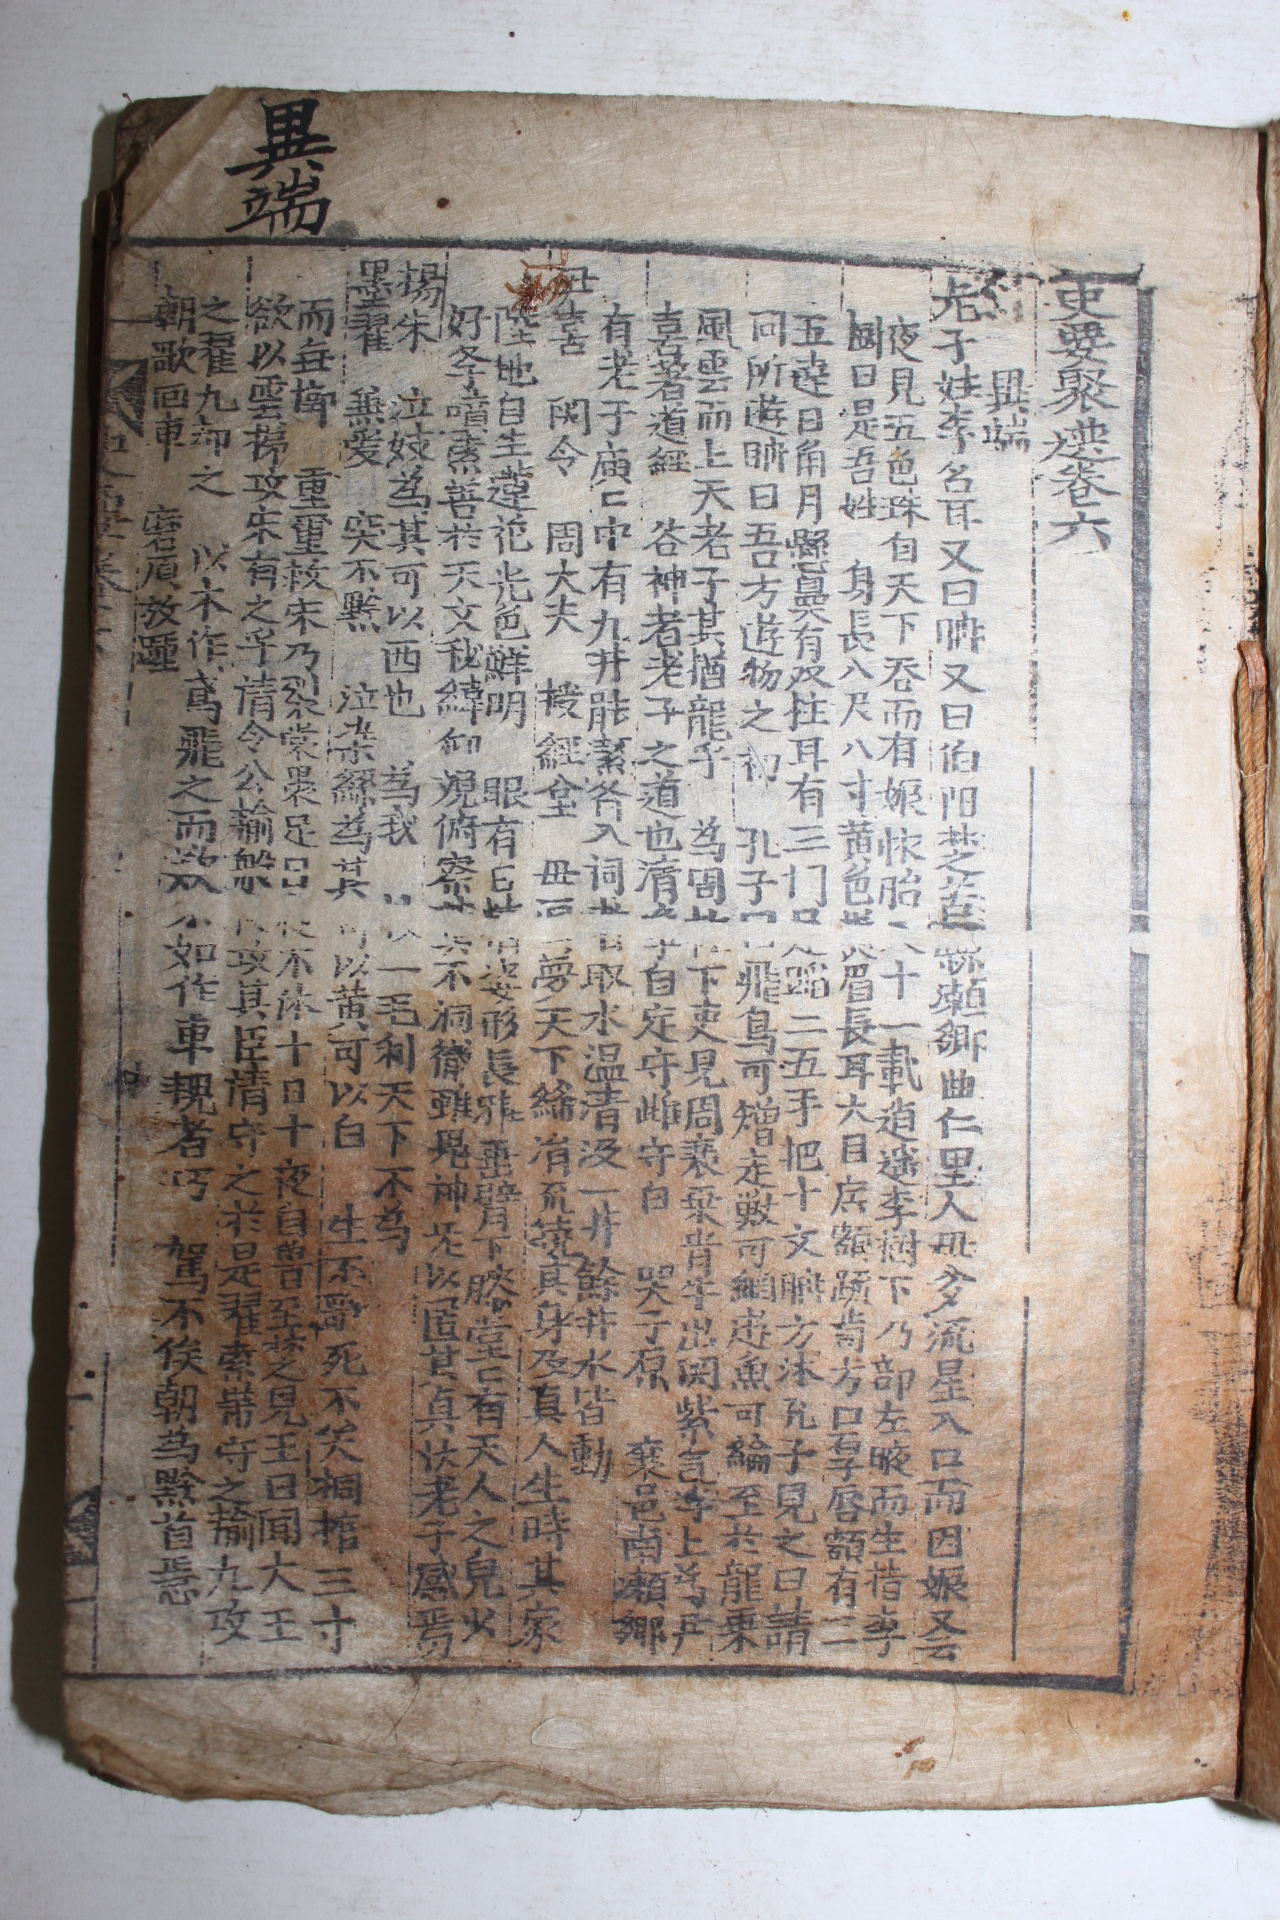 異端
史要聚選卷六
異端
老子姓李名耳又曰聃又曰伯陽楚之苦縣瀨鄉曲仁里人母夛流星入口而因娠又云
夜見五色珠自天下吞而有娠懷胎八十一載逍遙李樹下乃部左腋而生指李
樹曰是吾姓 身長八尺八寸黃色美眉長耳大目広額疎齒方口厚唇額有二
五達日角月懸鼻有双柱耳有三门足蹈二五手把十文聃方沐孔子見之曰請
同所遊聃曰吾方遊物之初 孔子曰飛鳥可矰走獸可網逰魚可綸至於龍乘
風雲而上天老子其猶龍乎 爲周柱下吏見周衰乗青牛出関紫气浮上爲尹
喜著道經 谷神者老子之道也淸者自定守雌守白 哭于原 襄邑南瀬鄉
有老子庙亡中有九井能㓗斉入祠者取水温清汲一井餘井水皆動
尹喜 関令 周大夫 授經㙜 母 夢天下絳㳙流繞其身及真人生時其家
陸地自生蓮花光色鮮明 眼有日 姿形長雅垂臂下膝堂亡有天人之皃火
好學墳索善於天文秘緯仰觀俯察 不洞徹雖鬼神无以匿其真状老子感焉
楊朱 泣歧爲其可以西也 爲我 一毛利天下不爲
墨翟 兼爱 突不黔 泣染絲爲其可以黄可以白 生不歌死不哭桐棺三寸
而無槨 重蠒救宋乃裂裳褁足日夜不休十日十夜自魯至楚見王曰聞大王
欲以雲梯攻宋有之乎請令公輸般 攻其臣請守之於是翟索帶守之輸九攻
之翟九却之 以木作鳶飛之而 不如作車輗者巧 駕不俟朝爲黔首焉
朝歌囘車 磨頂放踵